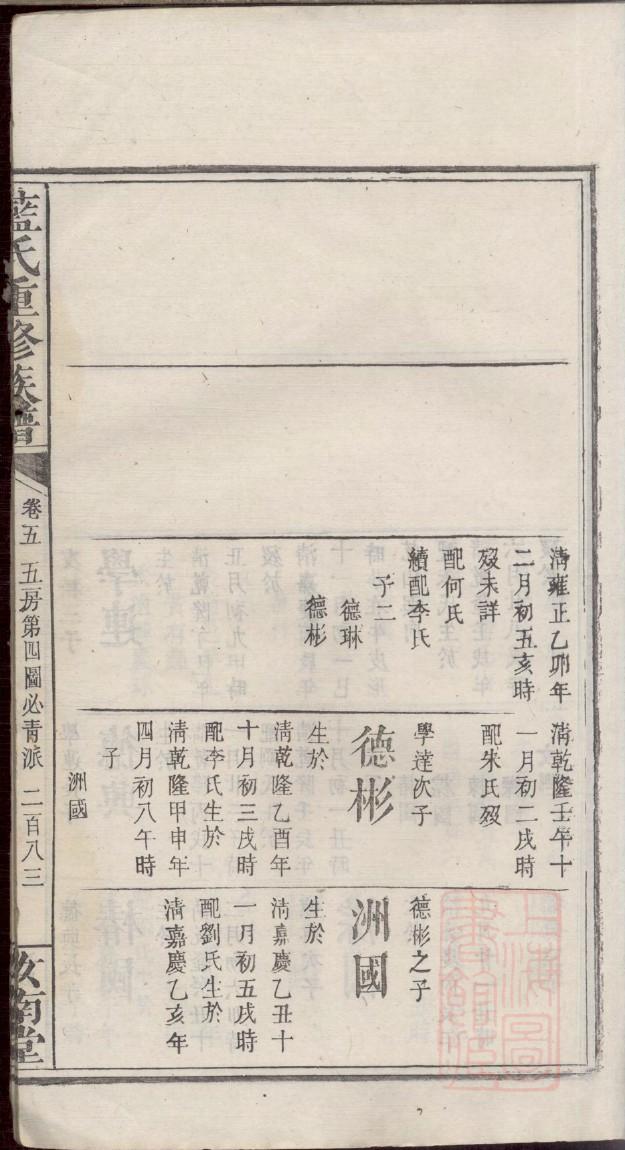 清雍正乙卯年
二月初五亥時
歿未詳
配何氏
續配李氏
子二
德琳
德彬
清乾隆壬午十
一月初二戌時
配朱氏歿
學達次子
德彬
生於
清乾隆乙酉年
十月初三戌時
配李氏生於
清乾隆甲申年
四月初八午時
子
洲國
德彬之子
洲國
生於
清嘉慶乙丑十
一月初五戌時
配劉氏生於
清嘉慶乙亥年
藍氏重修族譜
卷五
五房第四圖必青派
二百八三
汝南堂
上海圖書館藏